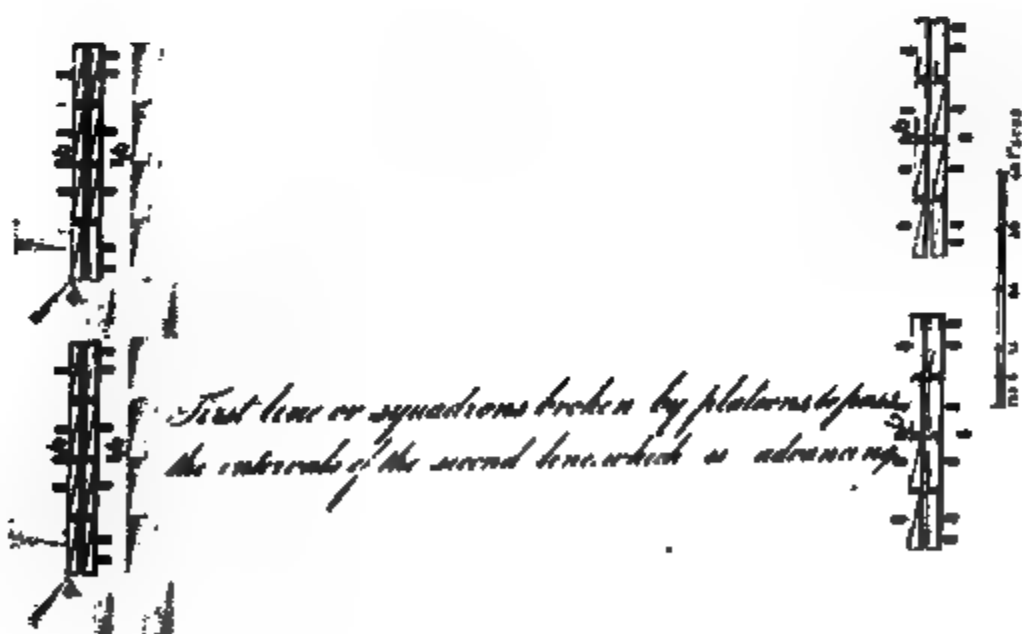 First line or squadrons broken by platoons to pass
the intervals of the second line which is advancing